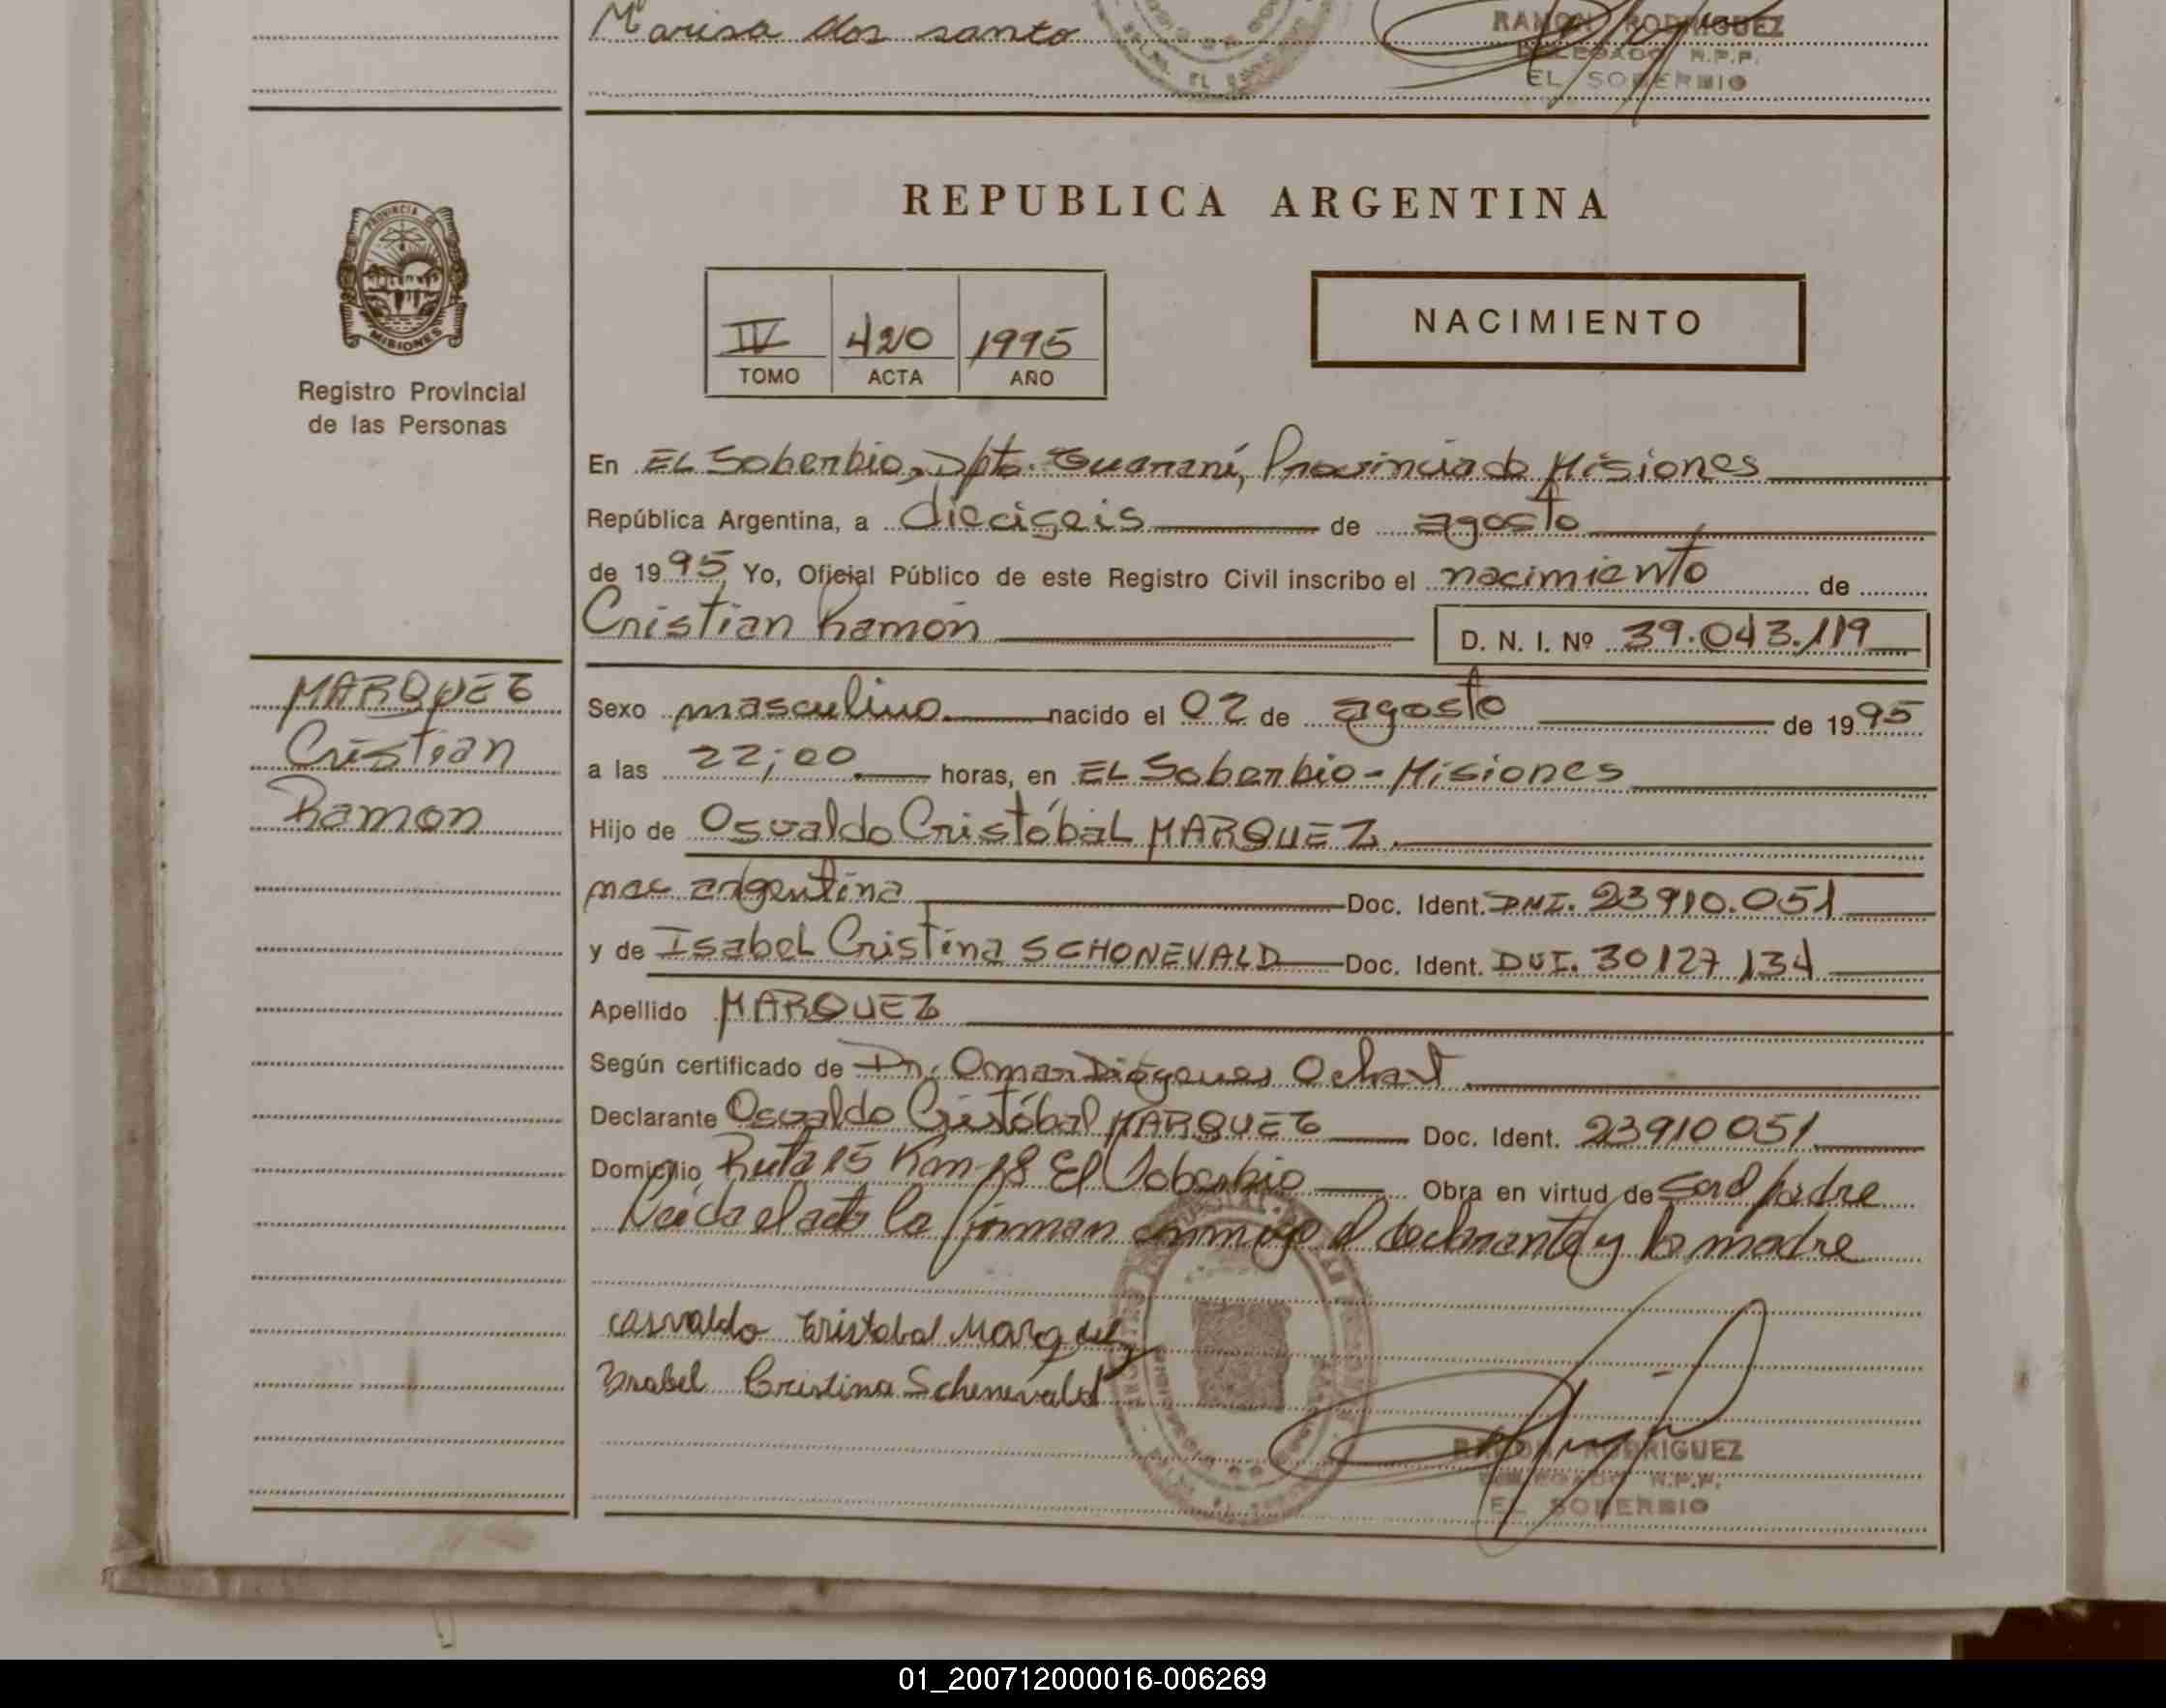 Marisa dos santo
RAMON RODRIGUEZ
DELEGADO R.P.P.
EL SOBERBIO
PROVINCIA DE
MISIONES
Registro Provincial
de las Personas
REPUBLICA ARGENTINA
IV 420 1995
TOMO ACTA AÑO
NACIMIENTO
En EL Soberbio, Dpto. Guaraní, Provincia de Misiones
República Argentina, a dieciseis de agosto
de 1995 Yo, Oficial Público de este Registro Civil inscribo el nacimiento de
Cristian Ramón D. N. I. Nº 39.043.119
MARQUEZ
Cristian
Ramon
Sexo masculino nacido el 02 de agosto de 1995
a las 22;00 horas, en EL Soberbio - Misiones
Hijo de Osvaldo Cristóbal MARQUEZ
nac argentina Doc. Ident. DNI. 23910.051
y de Isabel Cristina SCHONEVALD Doc. Ident. DNI. 30127134
Apellido MARQUEZ
Según certificado de Dr. Omar Diógenes Ochart
Declarante Osvaldo Cristóbal MARQUEZ Doc. Ident. 23910051
Domicilio Ruta 15 Km 18 El Soberbio Obra en virtud de ser el padre
Leída el acta la firman conmigo el declarante y la madre
osvaldo Cristobal Marquez
Isabel Cristina Schenevald
RAMON RODRIGUEZ
DELEGADO R.P.P.
EL SOBERBIO
01_200712000016-006269